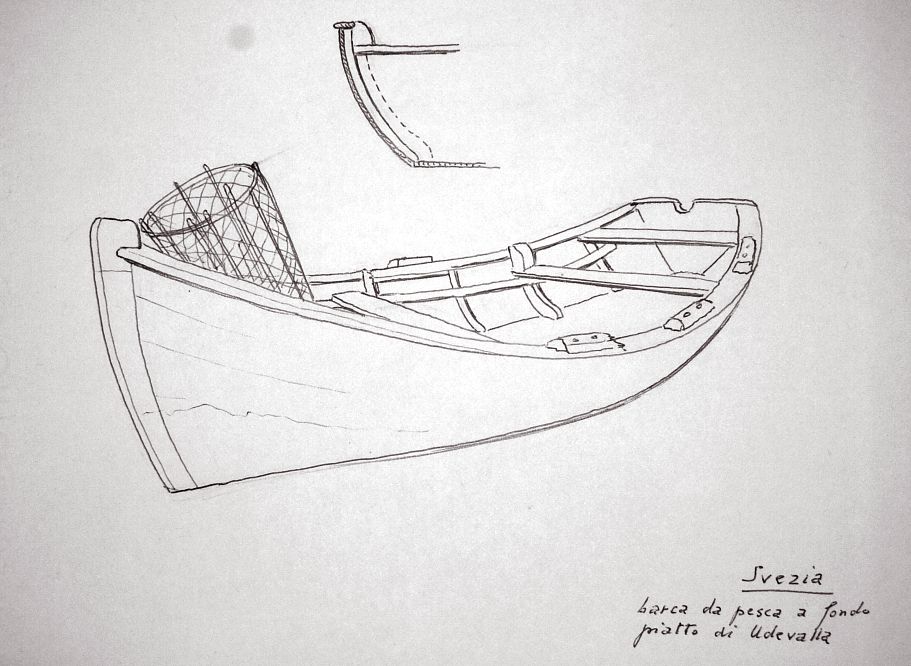 Svezia
barca da pesca a fondo
piatto di Udevalla